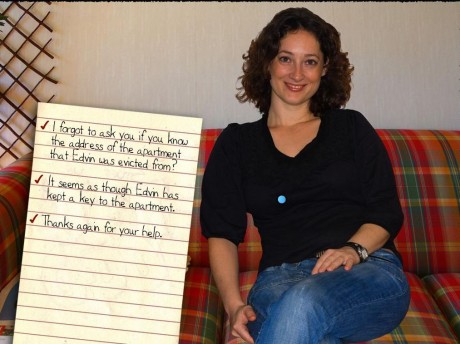 I forgot to ask you if you know
the address of the apartment
that Edvin was evicted from?
It seems as though Edvin has
kept a key to the apartment.
Thanks again for your help.